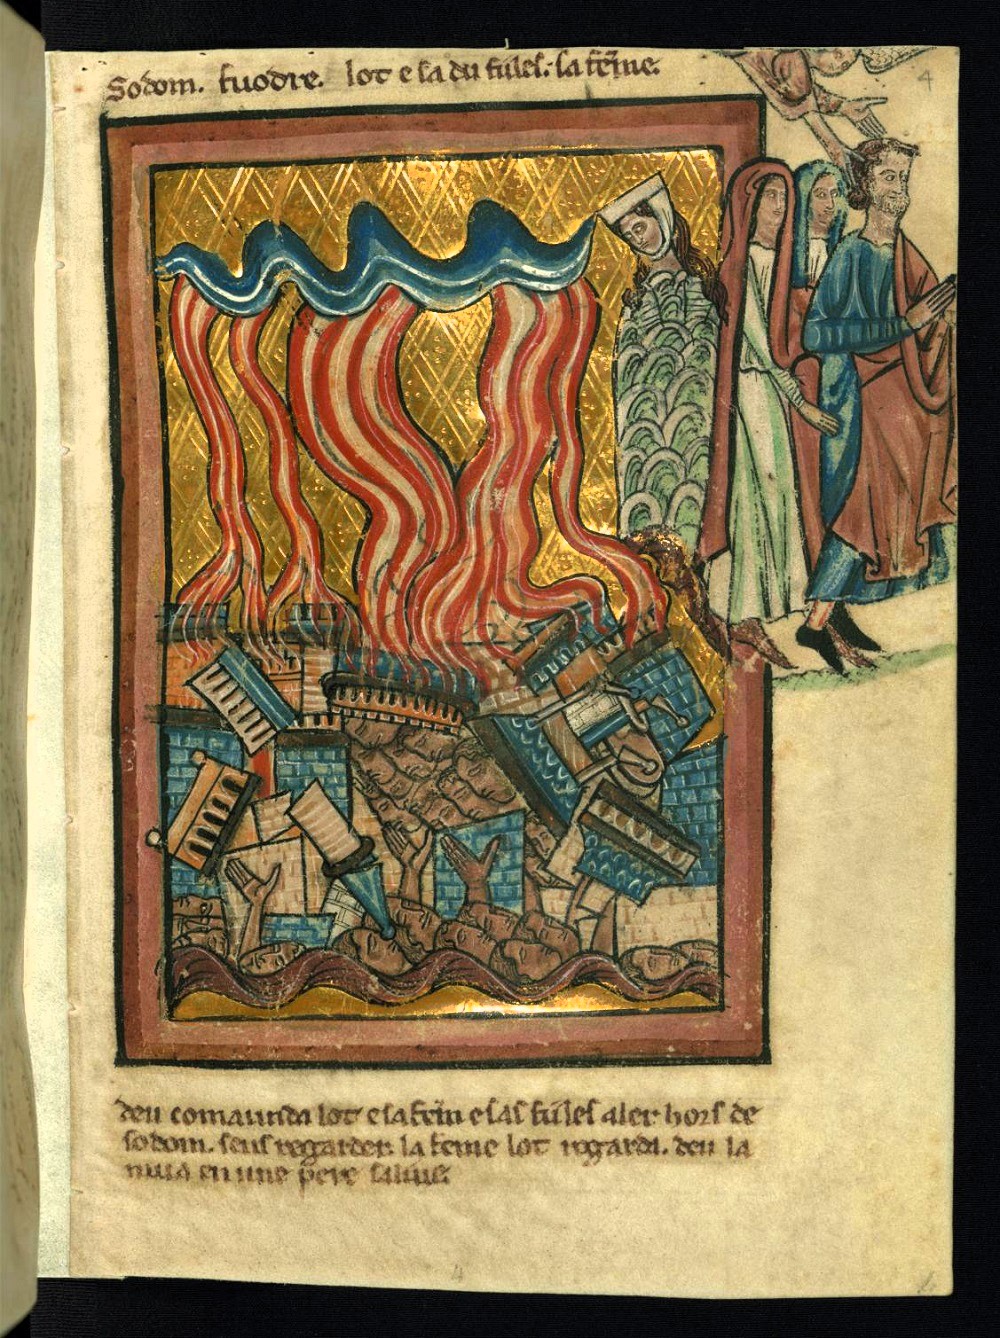 Sodom. fuodre. lot e sa du filles. sa feme.
4
deu comaunda lot e sa fem e sas filles aler hors de
sodom. sens regarder. la feme lot regarda. deu la
mua en une pere salius.